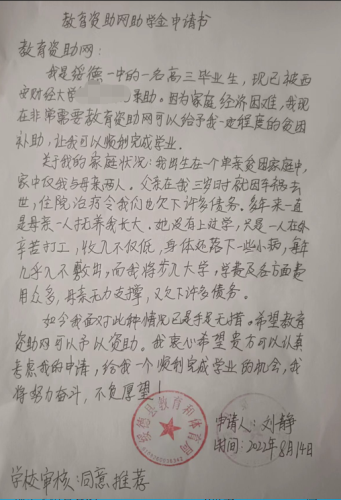 教育资助网助学金申请书
教育资助网：
我是绥德一中的一名高三毕业生，现已被西
安财经大学 录取。因为家庭经济困难，我现
在非常需要教育资助网可以给予我一定程度的贫困
补助，让我可以顺利完成学业。
关于我的家庭状况：我出生在一个单亲贫困家庭中，
家中仅我与母亲两人。父亲在我三岁时就因车祸去
世，住院治疗令我们也欠下许多债务。多年来一直
是母亲一人抚养我长大。她没有上过学，只是一人在外
辛苦打工，收入不仅低，身体还落下一些小病，每年
几乎入不敷出，而我将步入大学，学费及各方面费
用众多，母亲无力支撑，又欠下许多债务。
如今我面对此种情况已是手足无措。希望教育
资助网可以予以资助。我衷心希望贵方可以认真
考虑我的申请，给我一个顺利完成学业的机会，我
将努力奋斗，不负厚望！
绥德县教育和体育局
申请人：刘静
时间：2022年8月14日
学校审核：同意推荐